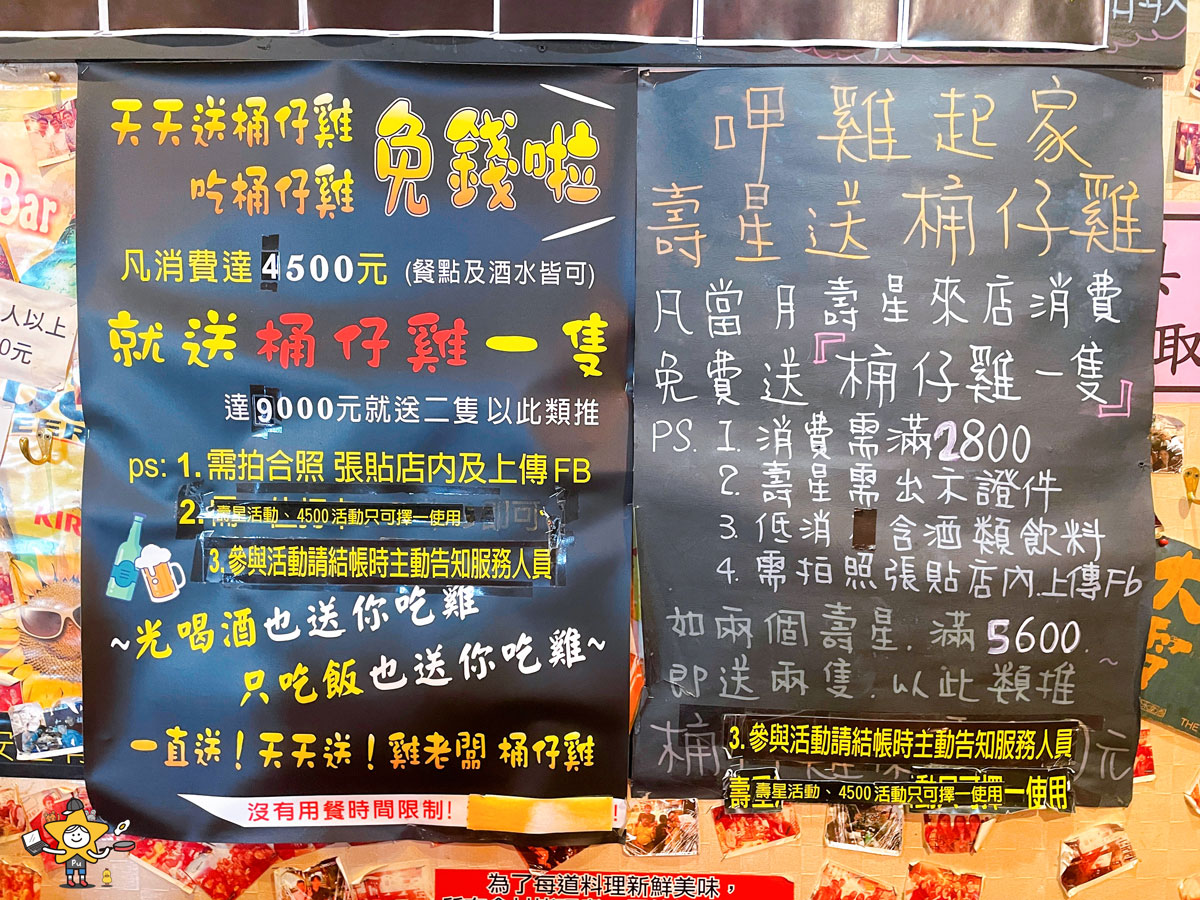 天天送桶仔雞
吃桶仔雞
免錢啦
凡消費達4500元 (餐點及酒水皆可)
就送桶仔雞一隻
達9000元就送二隻 以此類推
ps: 1. 需拍合照 張貼店內及上傳FB
2. 壽星活動、4500活動只可擇一使用
3. 參與活動請結帳時主動告知服務人員
~光喝酒也送你吃雞
只吃飯也送你吃雞~
一直送!天天送!雞老闆 桶仔雞
沒有用餐時間限制!
呷雞起家
壽星送桶仔雞
凡當月壽星來店消費
免費送『桶仔雞一隻』
PS. 1. 消費需滿2800
2. 壽星需出示證件
3. 低消 含酒類飲料
4. 需拍照張貼店內上傳Fb
如兩個壽星.滿5600.
即送兩隻.以此類推~
桶
元
3. 參與活動請結帳時主動告知服務人員
壽星活動、4500活動只可擇一使用
一使用
Bar
人以上
0元
KIR
取
大
安
Pu
為了每道料理新鮮美味，